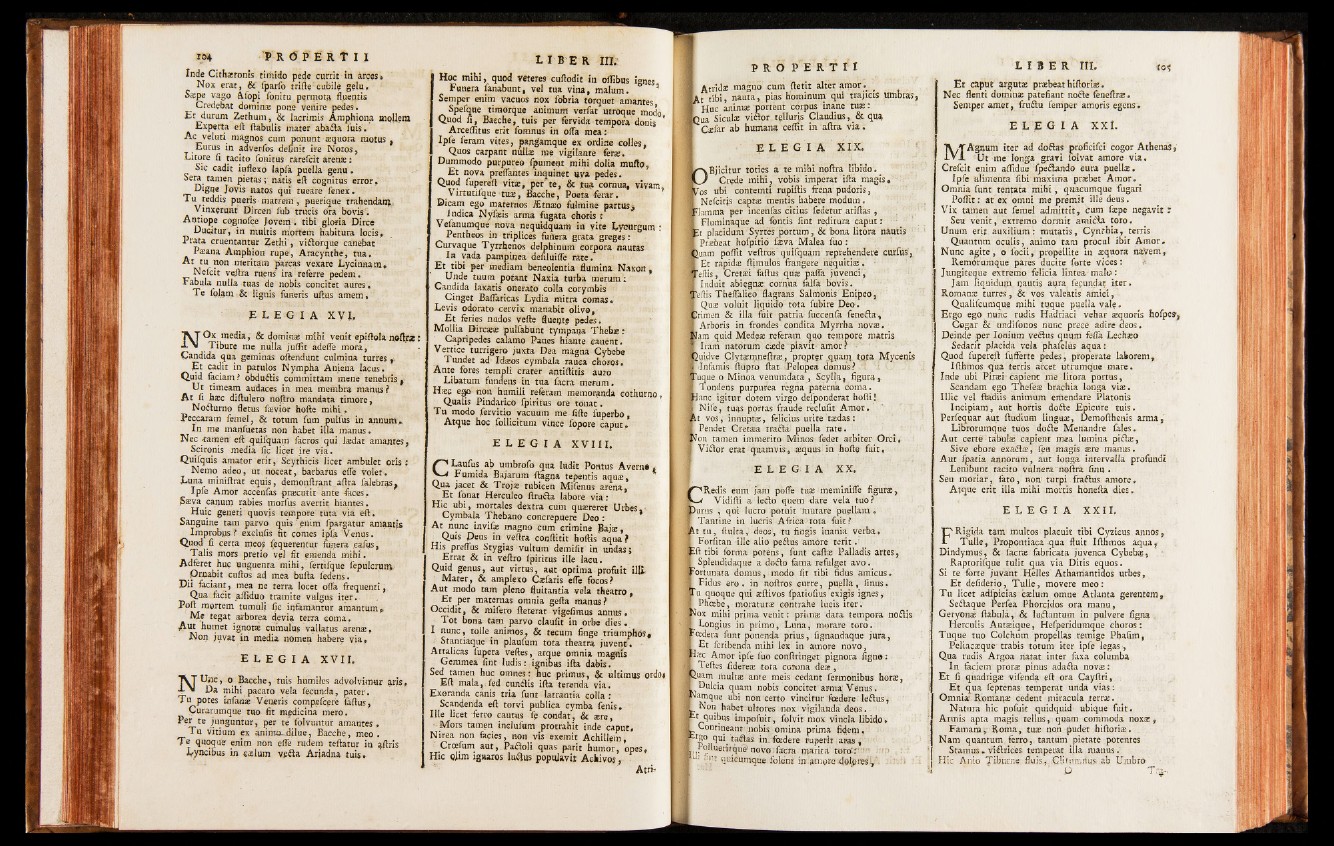 104 PROPERTII
Inde Cithæronis timido pede currit in arces.
Nox erat, & sparso triste cubile gelu.
Sæpe vago Asopi sonitu permota fluentis
Credebat dominæ pone venire pedes.
Et durum Zethum, & lacrimis Amphiona mollem
Experta est stabulis mater abacta suis.
Ac veluti magnos cum ponunt æquora motus,
Eurus in adversos desinit ire Notos,
Litore si tacito sonitus rarescit arenæ:
Sic cadit inflexo lapsa puella genu.
Sera tamen pietas; natis est cognitus error.
Digne Jovis natos qui tueare senex.
Tu reddis pueris matrem, puerique trahendam
Vinxerunt Dircen sub trucis ora bovis.
Antiope cognosce Jovem. tibi gloria Dirce
Ducitur, in multis mortem habitura locis.
Prata cruentantur Zethi, victorque canebat
Pæana Amphion rupe, Aracynthe, tua.
At tu non meritam parcas vexare Lycinnam.
Nescit vestra ruens ira referre pedem.
Fabula nulla tuas de nobis concitet aures.
Te solam & lignis funeris ustus amem.
ELEGIA XVI.
NOx media, & dominæ mihi venit epistola nostræ:
Tibure me nulla jussit adesse mora,
Candida qua geminas ostendunt culmina turres,
Et cadit in patulos Nympha Aniena lacus.
Quid faciam? obductis committam mene tenebris,
Ut timeam audaces in mea membra manus?
At si hæc distulero nostro mandata timore,
Nocturno fletus sævior hoste mihi.
Peccaram semel, & totum sum pulsus in annum.
In me mansuetas non habet illa manus.
Nec tamen est quisquam sacros qui lædat amantes,
Scironis media sic licet ire via.
Quisquis amator erit, Scythicis licet ambulet oris:
Nemo adeo, ut noceat, barbarus esse volet.
Luna ministrat equis, demonstrant astra salebras,
Ipse Amor accensas præcutit ante faces.
Sæva canum rabies morsus avertit hiantes.
Huic generi quovis tempore tuta via est.
Sanguine tam parvo quis enim spargatur amantis
Improbus? exclusis fit comes ipsa Venus.
Quod si certa meos sequerentur funera casus,
Talis mors pretio vel sit emenda mihi.
Adferet huc unguenta mihi, sertisque sepulcrum
Ornabit custos ad mea busta sedens.
Dii faciant, mea ne terra locet ossa frequenti,
Qua facit assiduo tramite vulgus iter.
Post mortem tumuli sic infamantur amantum,
Me tegat arborea devia terra coma.
Aut humet ignotæ cumulus vallatus arenæ.
Non juvat in media nomen habere via.
ELEGIA XVII.
NUnc, o Bacche, tuis humiles advolvimur aris.
Da mihi pacato vela secunda, pater.
Tu potes insanæ Veneris compescere fastus,
Curarumque tuo fit medicina mero.
Per te junguntur, per te solvuntur amantes.
Tu vitium ex animo dilue, Bacche, meo.
Te quoque enim non esse rudem testatur in astris
Lyncibus in cælum vecta Ariadna tuis.
LIBER III.
Hoc mihi, quod veteres custodit in ossibus ignes,
Funera sanabunt, vel tua vina, malum.
Semper enim vacuos nox sobria torquet amantes,
Spesque timorque animum versat utroque modo.
Quod si, Bacche, tuis per fervida tempora donis
Arcessitus erit somnus in ossa mea:
Ipse seram vites, pangamque ex ordine colles,
Quos carpant nullæ me vigilante feræ.
Dummodo purpureo spument mihi dolia musto,
Et nova pressantes inquinet uva pedes.
Quod superest vitæ, per te, & tua cornua, vivam,
Virtutisque tuæ, Bacche, Poeta ferar.
Dicam ego maternos Ætnæo fulmine partus,
Indica Nysæis arma fugata choris:
Vesanumque nova nequidquam in vite Lycurgum:
Pentheos in triplices funera grata greges:
Curvaque Tyrrhenos delphinum corpora nautas
In vada pampinea desiluisse rate.
Et tibi per mediam beneolentia flumina Naxon,
Unde tuum potant Naxia turba merum:
Candida laxatis onerato colla corymbis
Cinget Bassaricas Lydia mitra comas.
Levis odorato cervix manabit olivo,
Et feries nudos veste fluente pedes.
Mollia Dircææ pulsabunt tympana Thebæ:
Capripedes calamo Panes hiante canent.
Vertice turrigero juxta Dea magna Cybebe
Tundet ad Idæos cymbala rauca choros.
Ante fores templi crater antistitis auro
Libatum fundens in tua sacra merum.
Hæc ego non humili referam memoranda cothurno,
Qualis Pindarico spiritus ore tonat.
Tu modo servitio vacuum me siste superbo,
Atque hoc sollicitum vince sopore caput.
ELEGIA XVIII.
CLausus ab umbroso qua ludit Pontus Averno,
Fumida Bajarum stagna tepentis aquæ,
Qua jacet & Trojæ tubicen Misenus arena,
Et sonat Herculeo structa labore via:
Hic ubi, mortales dextra cum quæreret Urbes,
Cymbala Thebano concrepuere Deo:
At nunc invisæ magno cum crimine Bajæ,
Quis Deus in vestra constitit hostis aqua?
His pressus Stygias vultum demisit in undas;
Errat & in vestro spiritus ille lacu.
Quid genus, aut virtus, aut optima profuit illi
Mater, & amplexo Cæsaris esse focos?
Aut modo tam pleno fluitantia vela theatro,
Et per maternas omnia gesta manus?
Occidit, & misero steterat vigesimus annus.
Tot bona tam parvo clausit in orbe dies.
I nunc, tolle animos, & tecum finge triumphos,
Stantiaque in plausum tota theatra juvent.
Attalicas supera vestes, atque omnia magnis
Gemmea sint ludis: ignibus ista dabis.
Sed tamen huc omnes: huc primus, & ultimus ordo:
Est mala, sed cunctis ista terenda via.
Exoranda canis tria sunt latrantia colla:
Scandenda est torvi publica cymba senis.
Ille licet ferro cautus se condat, & ære,
Mors tamen inclusum protrahit inde caput.
Nirea non facies, non vis exemit Achillem,
Crœsum aut, Pactoli quas parit humor, opes.
Hic olim ignaros luctus populavit Achivos,
Atri-
PROPERTII
Atridæ magno cum stetit alter amor.
At tibi, nauta, pias hominum qui trajicis umbras,
Huc animæ portent corpus inane tuæ:
Qua Siculæ victor telluris Claudius, & qua
Cæsar ab humana cessit in astra via.
ELEGIA XIX.
OBjicitur toties a te mihi nostra libido.
Crede mihi, vobis imperat ista magis.
Vos ubi contemti rupistis frena pudoris,
Nescitis captæ mentis habere modum.
Flamma per incensas citius sedetur aristas,
Fluminaque ad fontis sint reditura caput:
Et placidum Syrtes portum, & bona litora nautis
Præbeat hospitio sæva Malea suo:
Quam possit vestros quisquam reprehendere cursus,
Et rapidæ stimulos frangere nequitiæ.
Testis, Cretæi fastus quæ passa juvenci,
Induit abiegnæ cornua falsa bovis.
Testis Thessalico flagrans Salmonis Enipeo,
Quæ voluit liquido tota subire Deo.
Crimen & illa fuit patria succensa senecta,
Arboris in frondes condita Myrrha novæ.
Nam quid Medeæ referam quo tempore matris
Iram natorum cæde piavit amor?
Quidve Clytæmnestræ, propter quam tota Mycenis
Infamis stupro stat Pelopea domus?
Tuque o Minoa venumdata, Scylla, figura,
Tondens purpurea regna paterna coma.
Hanc igitur dotem virgo desponderat hosti!
Nise, tuas portas fraude reclusit Amor.
At vos, innuptæ, felicius urite tædas:
Pendet Cretæa tracta puella rate.
Non tamen immerito Minos sedet arbiter Orci.
Victor erat quamvis, æquus in hoste fuit.
ELEGIA XX.
CRedis eum jam posse tuæ meminisse figuræ,
Vidisti a lecto quem dare vela tuo?
Durus, qui lucro potuit mutare puellam.
Tantine in lucris Africa tota fuit?
At tu, stulta, deos, tu fingis inania verba.
Forsitan ille alio pectus amore terit.
Est tibi forma potens, sunt castæ Palladis artes,
Splendidaque a docto fama refulget avo.
Fortunata domus, modo sit tibi fidus amicus.
Fidus ero. in nostros curre, puella, sinus.
Tu quoque qui æstivos spatiosius exigis ignes,
Phœbe, moraturæ contrahe lucis iter.
Nox mihi prima venit: primæ data tempora noctis
Longius in primo, Luna, morare toro.
Fœdera sunt ponenda prius, signandaque jura,
Et scribenda mihi lex in amore novo,
Hæc Amor ipse suo constringet pignora signo:
Testes sidereæ tota corona deæ,
Quam multæ ante meis cedant sermonibus horæ,
Dulcia quam nobis concitet arma Venus.
Namque ubi non certo vincitur fœdere lectus,
Non habet ultores nox vigilanda deos.
Et quibus imposuit, solvit mox vincla libido.
Contineant nobis omina prima fidem.
Ergo qui tactas in fœdere ruperit aras,
Polluerirque novo sacra marita toro:
Illi sint quicumque solent in amore dolores,
LIBER III. 105
Et caput argutæ præbeat historiæ.
Nec flenti dominæ patefiant nocte fenestræ.
Semper amet, fructu semper amoris egens.
ELEGIA XXI.
MAgnum iter ad doctas proficisci cogor Athenas,
Ut me longa gravi solvat amore via.
Crescit enim assidue spectando cura puellæ.
Ipse alimenta sibi maxima præbet Amor.
Omnia sunt tentata mihi, quacumque fugari
Possit: at ex omni me premit ille deus.
Vix tamen aut semel admittit, cum sæpe negavit:
Seu venit, extremo dormit amicta toro.
Unum erit auxilium: mutatis, Cynthia, terris
Quantum oculis, animo tam procul ibit Amor.
Nunc agite, o socii, propellite in æquora navem,
Remorumque pares ducite sorte vices:
Jungiteque extremo felicia lintea malo:
Jam liquidum nautis aura secundat iter.
Romanæ turres, & vos valeatis amici,
Qualiscumque mihi tuque puella vale.
Ergo ego nunc rudis Hadriaci vehar æquoris hospes,
Cogar & undisonos nunc prece adire deos.
Deinde per Ionium vectus quum fessa Lechæo
Sedarit placida vela phaselus aqua:
Quod superest sufferte pedes, properate laborem,
Isthmos qua terris arcet utrumque mare.
Inde ubi Piræi capient me litora portus,
Scandam ego Theseæ brachia longa viæ.
Illic vel stadiis animum emendare Platonis
Incipiam, aut hortis docte Epicure tuis.
Persequar aut studium linguæ, Demosthenis arma,
Librorumque tuos docte Menandre sales.
Aut certe tabulæ capient mea lumina pictæ,
Sive ebore exactæ, seu magis ære manus.
Aut spatia annorum, aut longa intervalla profundi
Lenibunt tacito vulnera nostra sinu.
Seu moriar, fato, non turpi fractus amore.
Atque erit illa mihi mortis honesta dies.
ELEGIA XXII.
FRigida tam multos placuit tibi Cyzicus annos,
Tulle, Propontiaca qua fluit Isthmos aqua,
Dindymus, & sacræ fabricata juvenca Cybebæ,
Raptorisque tulit qua via Ditis equos.
Si te forte juvant Helles Athamantidos urbes,
Et desiderio, Tulle, movere meo:
Tu licet adspicias cælum omne Atlanta gerentem,
Sectaque Persea Phorcidos ora manu,
Geryonæ stabula, & luctantum in pulvere signa
Herculis Antæique, Hesperidumque choros:
Tuque tuo Colchum propellas remige Phasim,
Peliacæque trabis totum iter ipse legas,
Qua rudis Argoa natat inter saxa columba
In faciem proræ pinus adacta novæ:
Et si quadrigæ visenda est ora Caystri,
Et qua septenas temperat unda vias:
Omnia Romanæ cedent miracula terræ.
Natura hic posuit quidquid ubique fuit.
Armis apta magis tellus, quam commoda noxæ,
Famam, Roma, tuæ non pudet historiæ.
Nam quantum ferro, tantum pietate potentes
Stamus. victrices temperat illa manus.
Hic Anio Tiburne fluis, Clitumnus ab Umbro
D